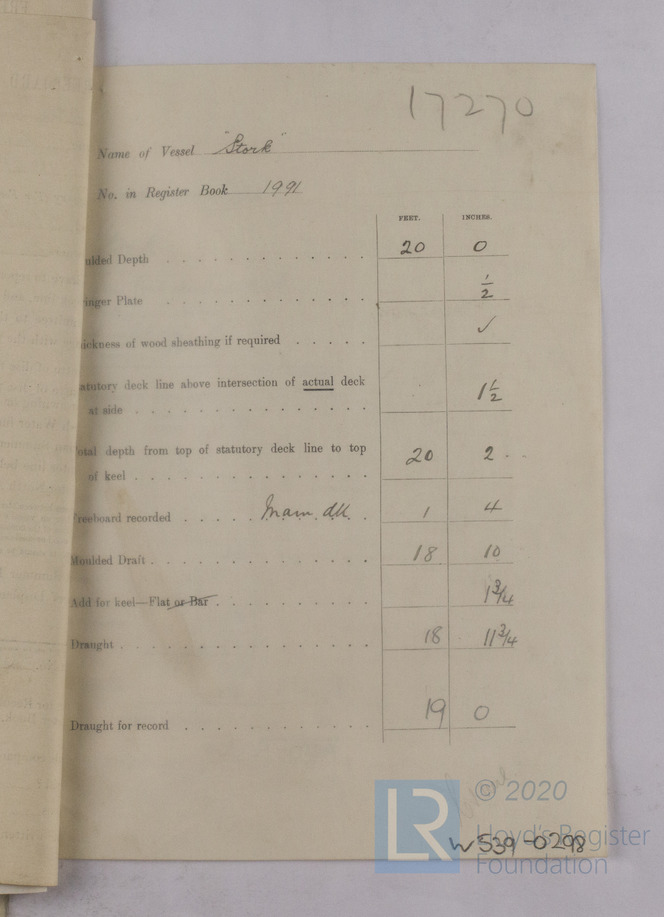 17270
Name of Vessel "Stork"
No. in Register Book 1991
FEET. INCHES.
ulded Depth 20 0
inger Plate 1/2
ickness of wood sheathing if required ✓
atutory deck line above intersection of actual deck
at side 1 1/2
otal depth from top of statutory deck line to top
of keel 20 2
Freeboard recorded Main dk 1 4
Moulded Draft 18 10
Add for keel—Flat or Bar 1 3/4
Draught 18 11 3/4
Draught for record 19 0
LR © 2020
Lloyd's Register
Foundation
W539-0298